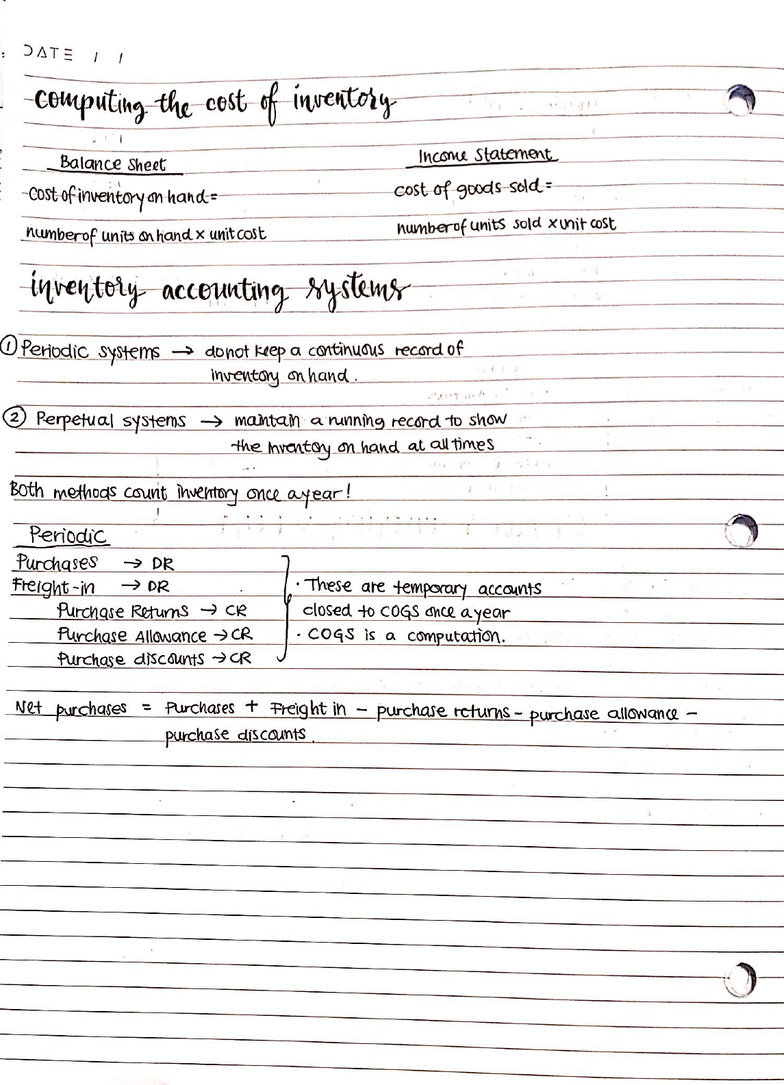 DATE / /
computing the cost of inventory
Balance sheet
cost of inventory on hand =
number of units on hand x unit cost
Income statement
cost of goods sold =
number of units sold x unit cost
inventory accounting systems
① Periodic systems → do not keep a continuous record of
inventory on hand.
② Perpetual systems → maintain a running record to show
the inventory on hand at all times
Both methods count inventory once a year!
Periodic
Purchases → DR
Freight-in → DR
Purchase Returns → CR
Purchase Allowance → CR
Purchase discounts → CR
· These are temporary accounts
closed to COGS once a year
· COGS is a computation.
Net purchases = Purchases + Freight in - purchase returns - purchase allowance -
purchase discounts.